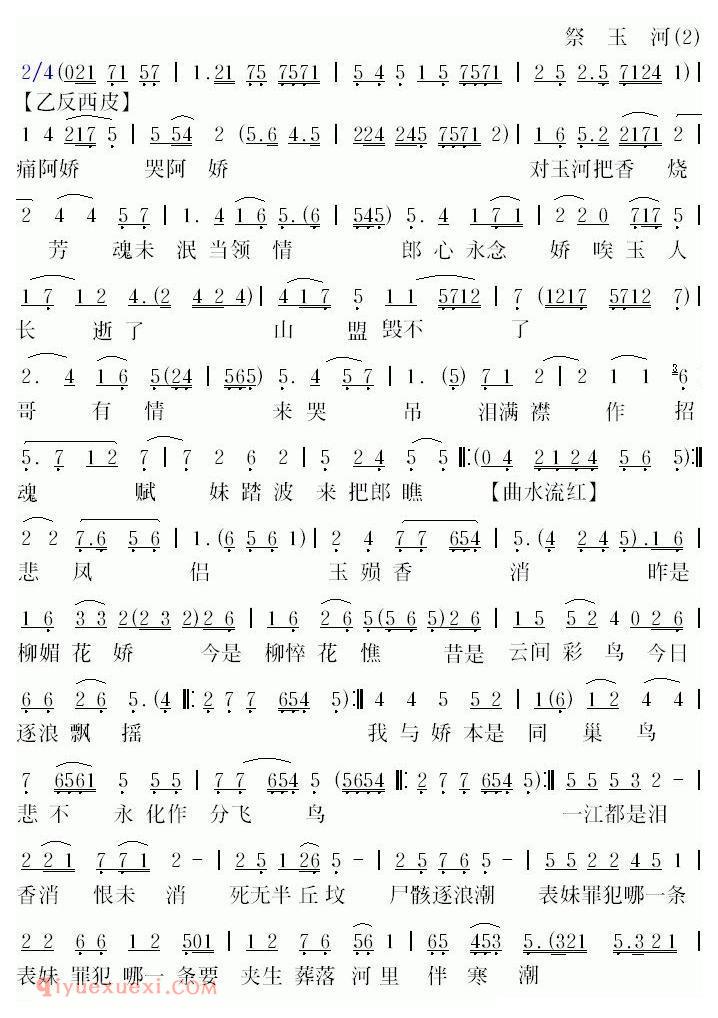 祭 玉 河(2)
2/4(021 71 57 | 1.21 75 7571 | 5 4 5 1 5 7571 | 2 5 2.5 7124 1)|
【乙反西皮】
1 4 2175 | 5 54 2 (5.6 4.5 | 224 245 7571 2)| 1 6 5.2 2171 2
痛阿娇 哭阿 娇 对玉河把香 烧
2 4 4 5 7 | 1. 4 1 6 5.(6 | 545) 5. 4 1 7 1 | 2 2 0 717 5
芳 魂未 泯 当领 情 郎 心 永念 娇 唉 玉 人
1 7 1 2 4.(2 4 2 4)| 4 1 7 5 1 1 5712 | 7 (1217 5712 7)
长 逝 了 山 盟 毁不 了
2. 4 1 6 5(24 | 565) 5. 4 5 7 | 1. (5) 7 1 2 | 2 1 1 3 6
哥 有 情 来 哭 吊 泪满 襟 作 招
5. 7 1 2 7 | 7 2 6 2 | 5 2 4 5 5 𝄆(0 4 2124 5 6 5)
魂 赋 妹 踏 波 来 把 郎 瞧 【曲水流红】
2 2 7.6 5 6 | 1.(6 5 6 1)| 2 4 7 7 654 | 5.(4 2 4 5).1 6
悲 凤 侣 玉 殒 香 消 昨是
1 6 3 3 2(2 3 2)2 6 | 1 6 2 6 5(5 6 5)2 6 | 1 5 5 2 4 0 2 6
柳媚 花 娇 今是 柳悴 花 憔 昔是 云间 彩 鸟 今日
6 6 2 6 5.(4 𝄆 2 7 7 654 5)| 4 4 5 5 2 | 1(6) 1 2 4 4
逐浪 飘 摇 我 与 娇 本是 同 巢 鸟
7 6561 5 5 5 | 7 7 654 5 (5654 𝄆 2 7 7 654 5)𝄇 5 5 5 3 2 -|
悲 不 永 化作 分飞 鸟 一江都是泪
2 2 1 7 7 1 2 -| 2 5 1 26 5 | 2 5 7 6 5 | 5 5 2 2 4 5 1
香消 恨未 消 死无半 丘坟 尸骸逐浪潮 表妹罪犯哪一条
2 2 6 6 1 2 501 | 1 2 7 6 56 1 | 65 453 5.(321 5.321
表妹 罪犯 哪一 条要 夹生 葬落 河 里 伴 寒 潮
qiyuexuexi.com(七月学习网)